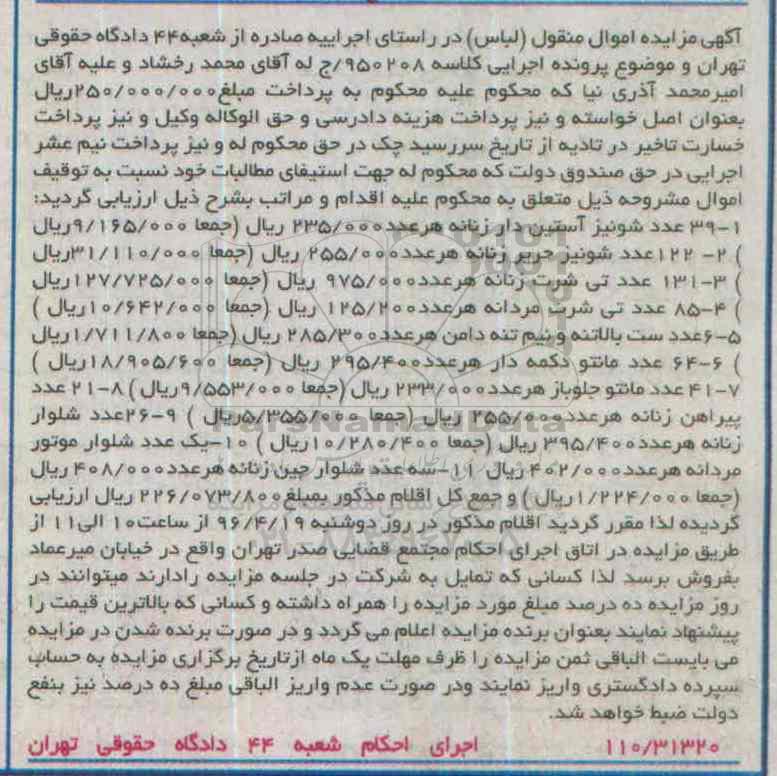 آگهی مزایده اموال منقول (لباس) در راستای اجراییه صادره از شعبه۴۴ دادگاه حقوقی
تهران و موضوع پرونده اجرایی کلاسه ۹۵۰۲۰۸/ج له آقای محمد رخشاد و علیه آقای
امیرمحمد آذری نیا که محکوم علیه محکوم به پرداخت مبلغ۲۵۰/۰۰۰/۰۰۰ریال
بعنوان اصل خواسته و نیز پرداخت هزینه دادرسی و حق الوکاله وکیل و نیز پرداخت
خسارت تاخیر در تادیه از تاریخ سررسید چک در حق محکوم له و نیز پرداخت نیم عشر
اجرایی در حق صندوق دولت که محکوم له جهت استیفای مطالبات خود نسبت به توقیف
اموال مشروحه ذیل متعلق به محکوم علیه اقدام و مراتب بشرح ذیل ارزیابی گردید:
۱-۳۹ عدد شونیز آستین دار زنانه هرعدد۲۳۵/۰۰۰ ریال (جمعا ۹/۱۶۵/۰۰۰ریال
) ۲- ۱۲۲عدد شونیز حریر زنانه هرعدد۲۵۵/۰۰۰ ریال (جمعا ۳۱/۱۱۰/۰۰۰ریال
) ۳-۱۳۱ عدد تی شرت زنانه هرعدد۹۷۵/۰۰۰ ریال (جمعا ۱۲۷/۷۲۵/۰۰۰ریال
) ۴-۸۵ عدد تی شرت مردانه هرعدد۱۲۵/۲۰۰ ریال (جمعا ۱۰/۶۴۲/۰۰۰ریال )
۵-۶عدد ست بالاتنه و نیم تنه دامن هرعدد۲۸۵/۳۰۰ ریال (جمعا ۱/۷۱۱/۸۰۰ریال
) ۶-۶۴ عدد مانتو دکمه دار هرعدد۲۹۵/۴۰۰ ریال (جمعا ۱۸/۹۰۵/۶۰۰ریال )
۷-۴۱ عدد مانتو جلوباز هرعدد۲۳۳/۰۰۰ ریال (جمعا ۹/۵۵۳/۰۰۰ریال) ۸-۲۱ عدد
پیراهن زنانه هرعدد۲۵۵/۰۰۰ ریال (جمعا ۵/۳۵۵/۰۰۰ریال ) ۹-۲۶عدد شلوار
زنانه هرعدد۳۹۵/۴۰۰ ریال (جمعا ۱۰/۲۸۰/۴۰۰ریال ) ۱۰-یک عدد شلوار موتور
مردانه هرعدد۴۰۲/۰۰۰ریال ۱۱-سه عدد شلوار جین زنانه هرعدد۴۰۸/۰۰۰ ریال
(جمعا ۱/۲۲۴/۰۰۰ریال ) و جمع کل اقلام مذکور بمبلغ ۲۲۶/۰۷۳/۸۰۰ ریال ارزیابی
گردیده لذا مقرر گردید اقلام مذکور در روز دوشنبه ۹۶/۴/۱۹ از ساعت۱۰ الی۱۱ از
طریق مزایده در اتاق اجرای احکام مجتمع قضایی صدر تهران واقع در خیابان میرعماد
بفروش برسد لذا کسانی که تمایل به شرکت در جلسه مزایده رادارند میتوانند در
روز مزایده ده درصد مبلغ مورد مزایده را همراه داشته و کسانی که بالاترین قیمت را
پیشنهاد نمایند بعنوان برنده مزایده اعلام می گردد و در صورت برنده شدن در مزایده
می بایست الباقی ثمن مزایده را ظرف مهلت یک ماه ازتاریخ برگزاری مزایده به حساب
سپرده دادگستری واریز نمایند ودر صورت عدم واریز الباقی مبلغ ده درصد نیز بنفع
دولت ضبط خواهد شد.
۱۱۰/۳۱۳۲۰ اجرای احکام شعبه ۴۴ دادگاه حقوقی تهران
ParsNamadData